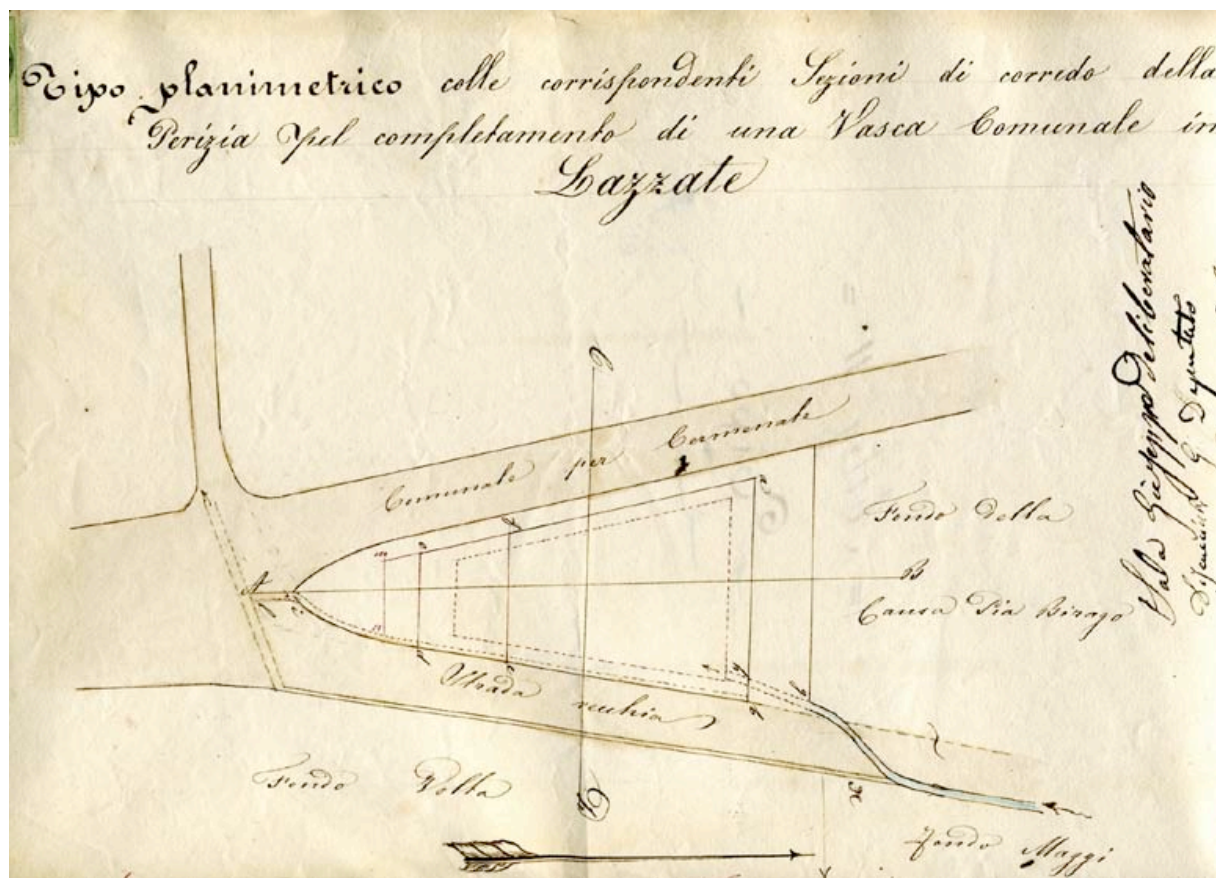 Tipo planimetrico colle corrispondenti Sezioni di corredo della
Perizia pel completamento di una Vasca Comunale in
Lazzate
Comunale per Cermenate
Fondo della
Causa Pia Birago
Strada vecchia
Fondo Volta
Fondo Maggi
A
B
Sala Giuseppe deliberatario
Deputato